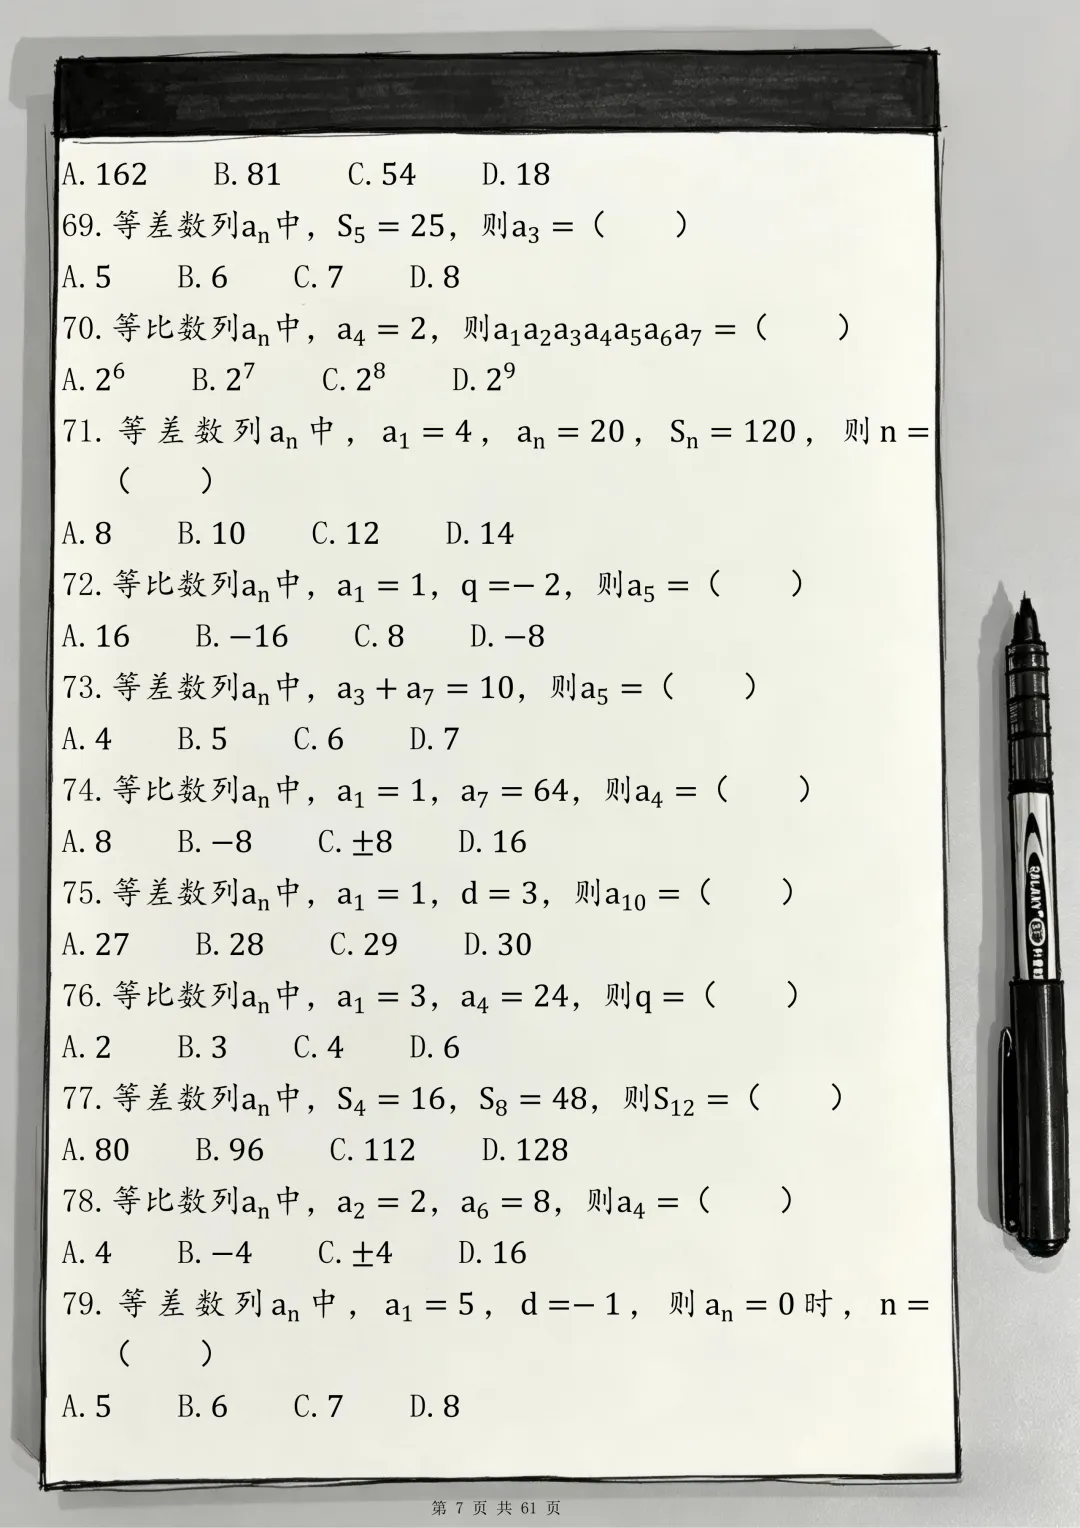 A. 162 B. 81 C. 54 D. 18
69. 等差数列aₙ中，S₅ = 25，则a₃ =（ ）
A. 5 B. 6 C. 7 D. 8
70. 等比数列aₙ中，a₄ = 2，则a₁a₂a₃a₄a₅a₆a₇ =（ ）
A. 2⁶ B. 2⁷ C. 2⁸ D. 2⁹
71. 等差数列aₙ中，a₁ = 4，aₙ = 20，Sₙ = 120，则n =
（ ）
A. 8 B. 10 C. 12 D. 14
72. 等比数列aₙ中，a₁ = 1，q =− 2，则a₅ =（ ）
A. 16 B. −16 C. 8 D. −8
73. 等差数列aₙ中，a₃ + a₇ = 10，则a₅ =（ ）
A. 4 B. 5 C. 6 D. 7
74. 等比数列aₙ中，a₁ = 1，a₇ = 64，则a₄ =（ ）
A. 8 B. −8 C. ±8 D. 16
75. 等差数列aₙ中，a₁ = 1，d = 3，则a₁₀ =（ ）
A. 27 B. 28 C. 29 D. 30
76. 等比数列aₙ中，a₁ = 3，a₄ = 24，则q =（ ）
A. 2 B. 3 C. 4 D. 6
77. 等差数列aₙ中，S₄ = 16，S₈ = 48，则S₁₂ =（ ）
A. 80 B. 96 C. 112 D. 128
78. 等比数列aₙ中，a₂ = 2，a₆ = 8，则a₄ =（ ）
A. 4 B. −4 C. ±4 D. 16
79. 等差数列aₙ中，a₁ = 5，d =− 1，则aₙ = 0时，n =
（ ）
A. 5 B. 6 C. 7 D. 8
第 7 页 共 61 页